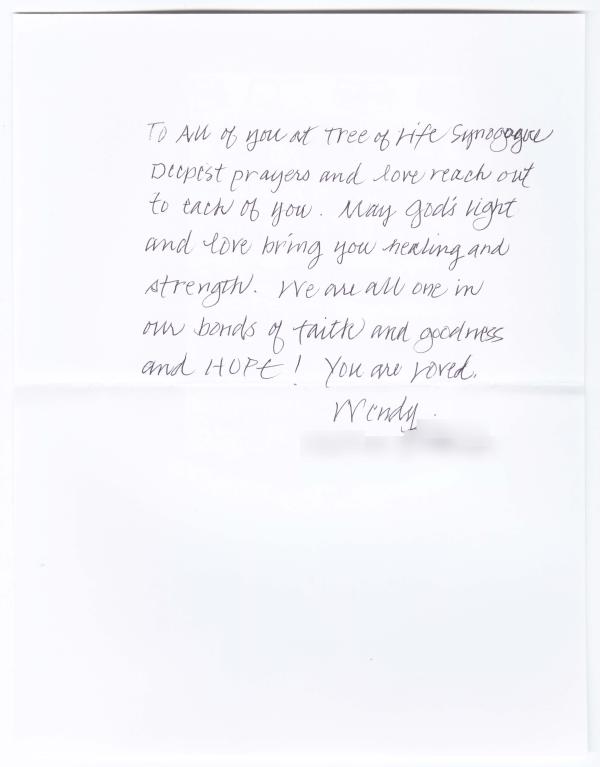 To All of you at Tree of Life Synagogue
Deepest prayers and love reach out
to each of you. May God's light
and love bring you healing and
strength. We are all one in
our bonds of faith and goodness
and HOPE! You are loved.
Wendy.